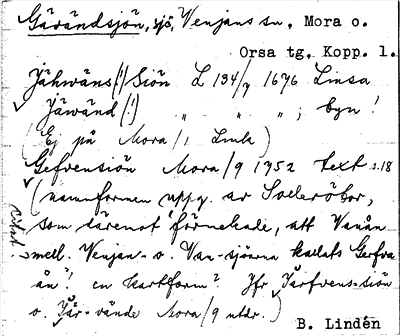 Gävändsjön, sjö, Venjans sn, Mora o.
Orsa tg, Kopp. l.
Jähwäns(!) Siön L 134/7 1676 Linsa
Jäwänd (!) " " " ; byn!
(Ej på Mora/1 Linsa)
Gefvensiön Mora/9 1752 text s.18
(namnformen uppg. av Soleröbor,
som däremot förnekade, att Vanån
mell. Venjan- o. Van-sjöarna kallats Gefva
ån"! en kartform? Jfr Järfvens-siön
o. Jär-vände Mora/9 utdr.)
citat!
B. Lindén